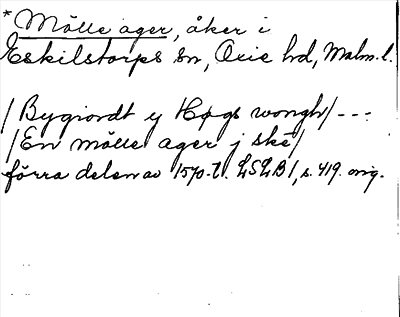 * Mölle ager, åker i
Eskilstorps sn, Oxie hd, Malm. l.
/Bygiordt y Høgs wongh/ ---
/En mölle ager j ske/
förra delen av 1570-t. LSLB 1, s. 419. orig.